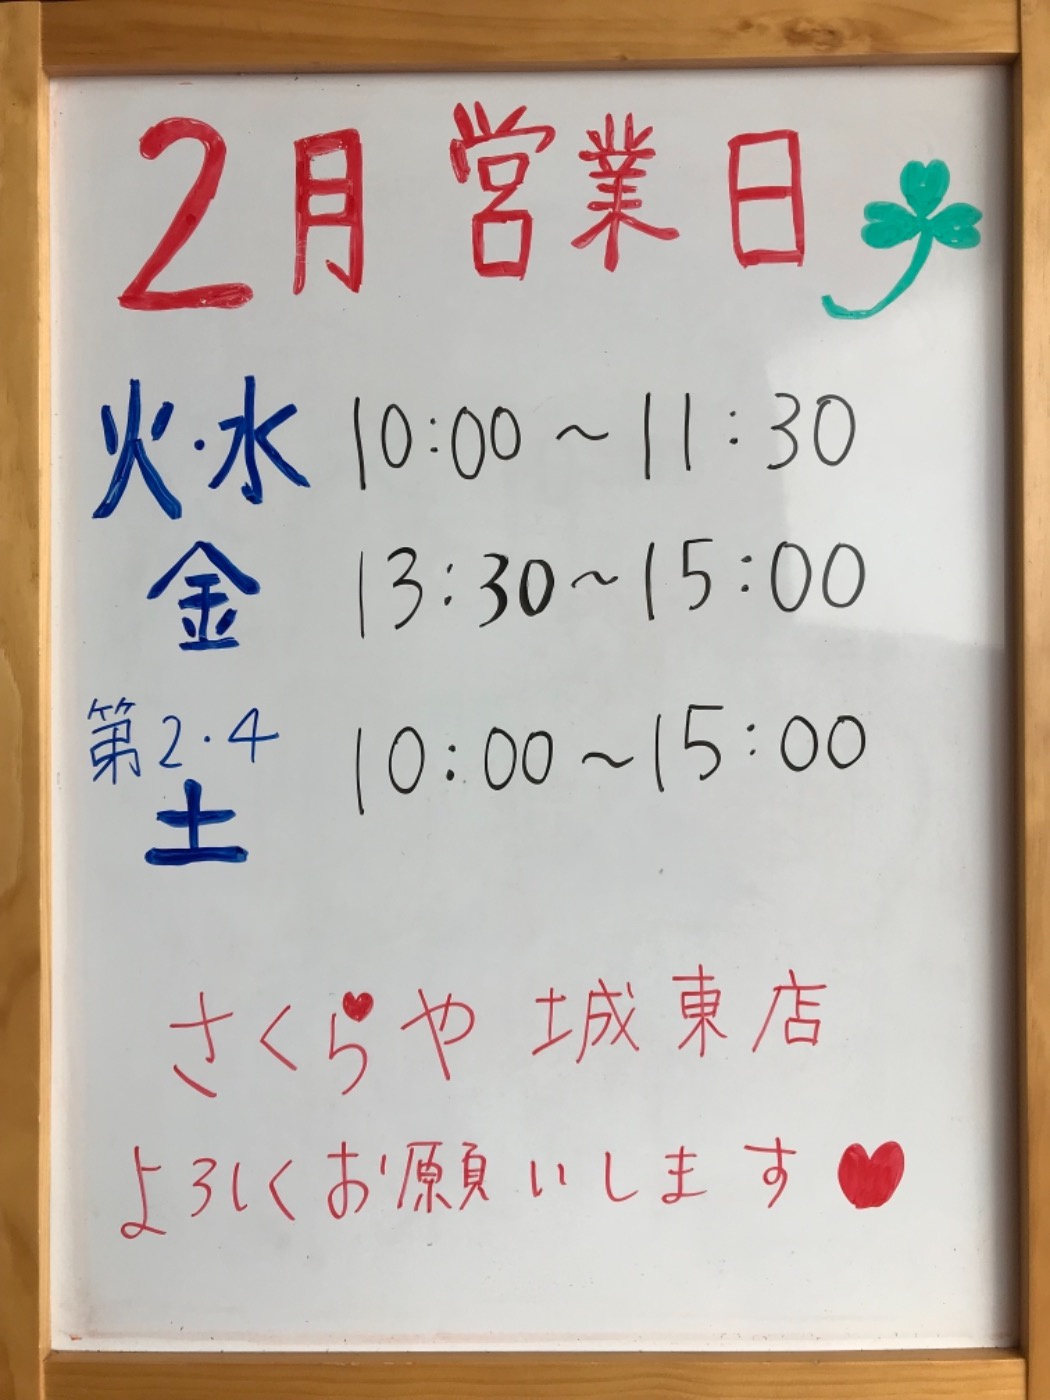 2月 営業日
火・水 10:00～11:30
金 13:30～15:00
第2・4
土 10:00～15:00
さくらや 城東店
よろしくお願いします